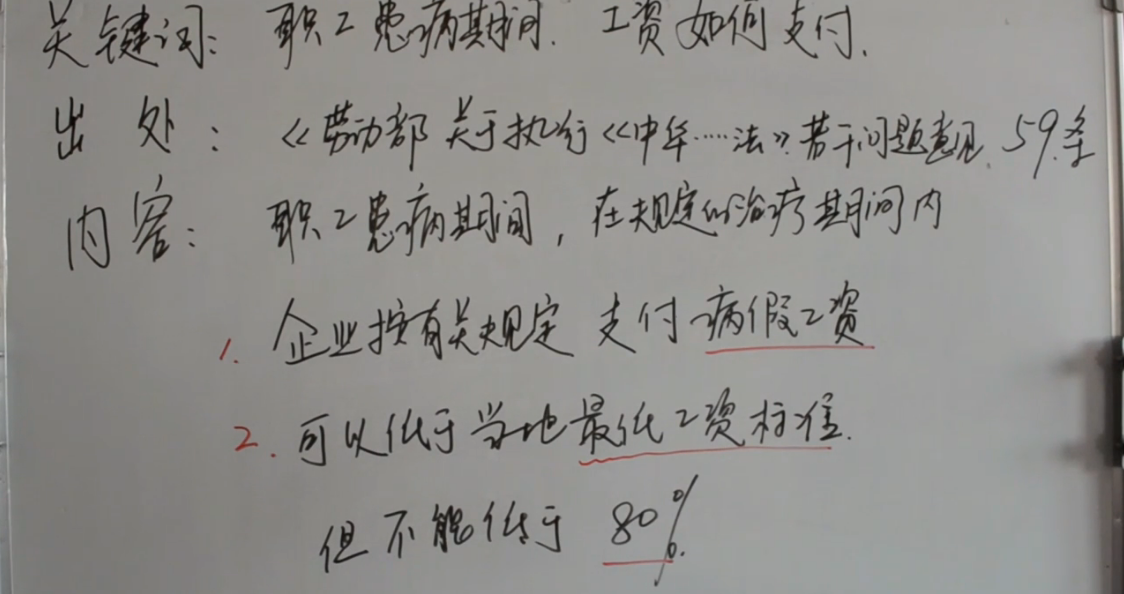 关键词: 职工患病期间. 工资如何支付.
出处: 《劳动部关于执行《中华……法》若干问题意见. 59条
内容: 职工患病期间, 在规定的治疗期间内
1. 企业按有关规定 支付病假工资
2. 可以低于当地最低工资标准.
但不能低于 80%.